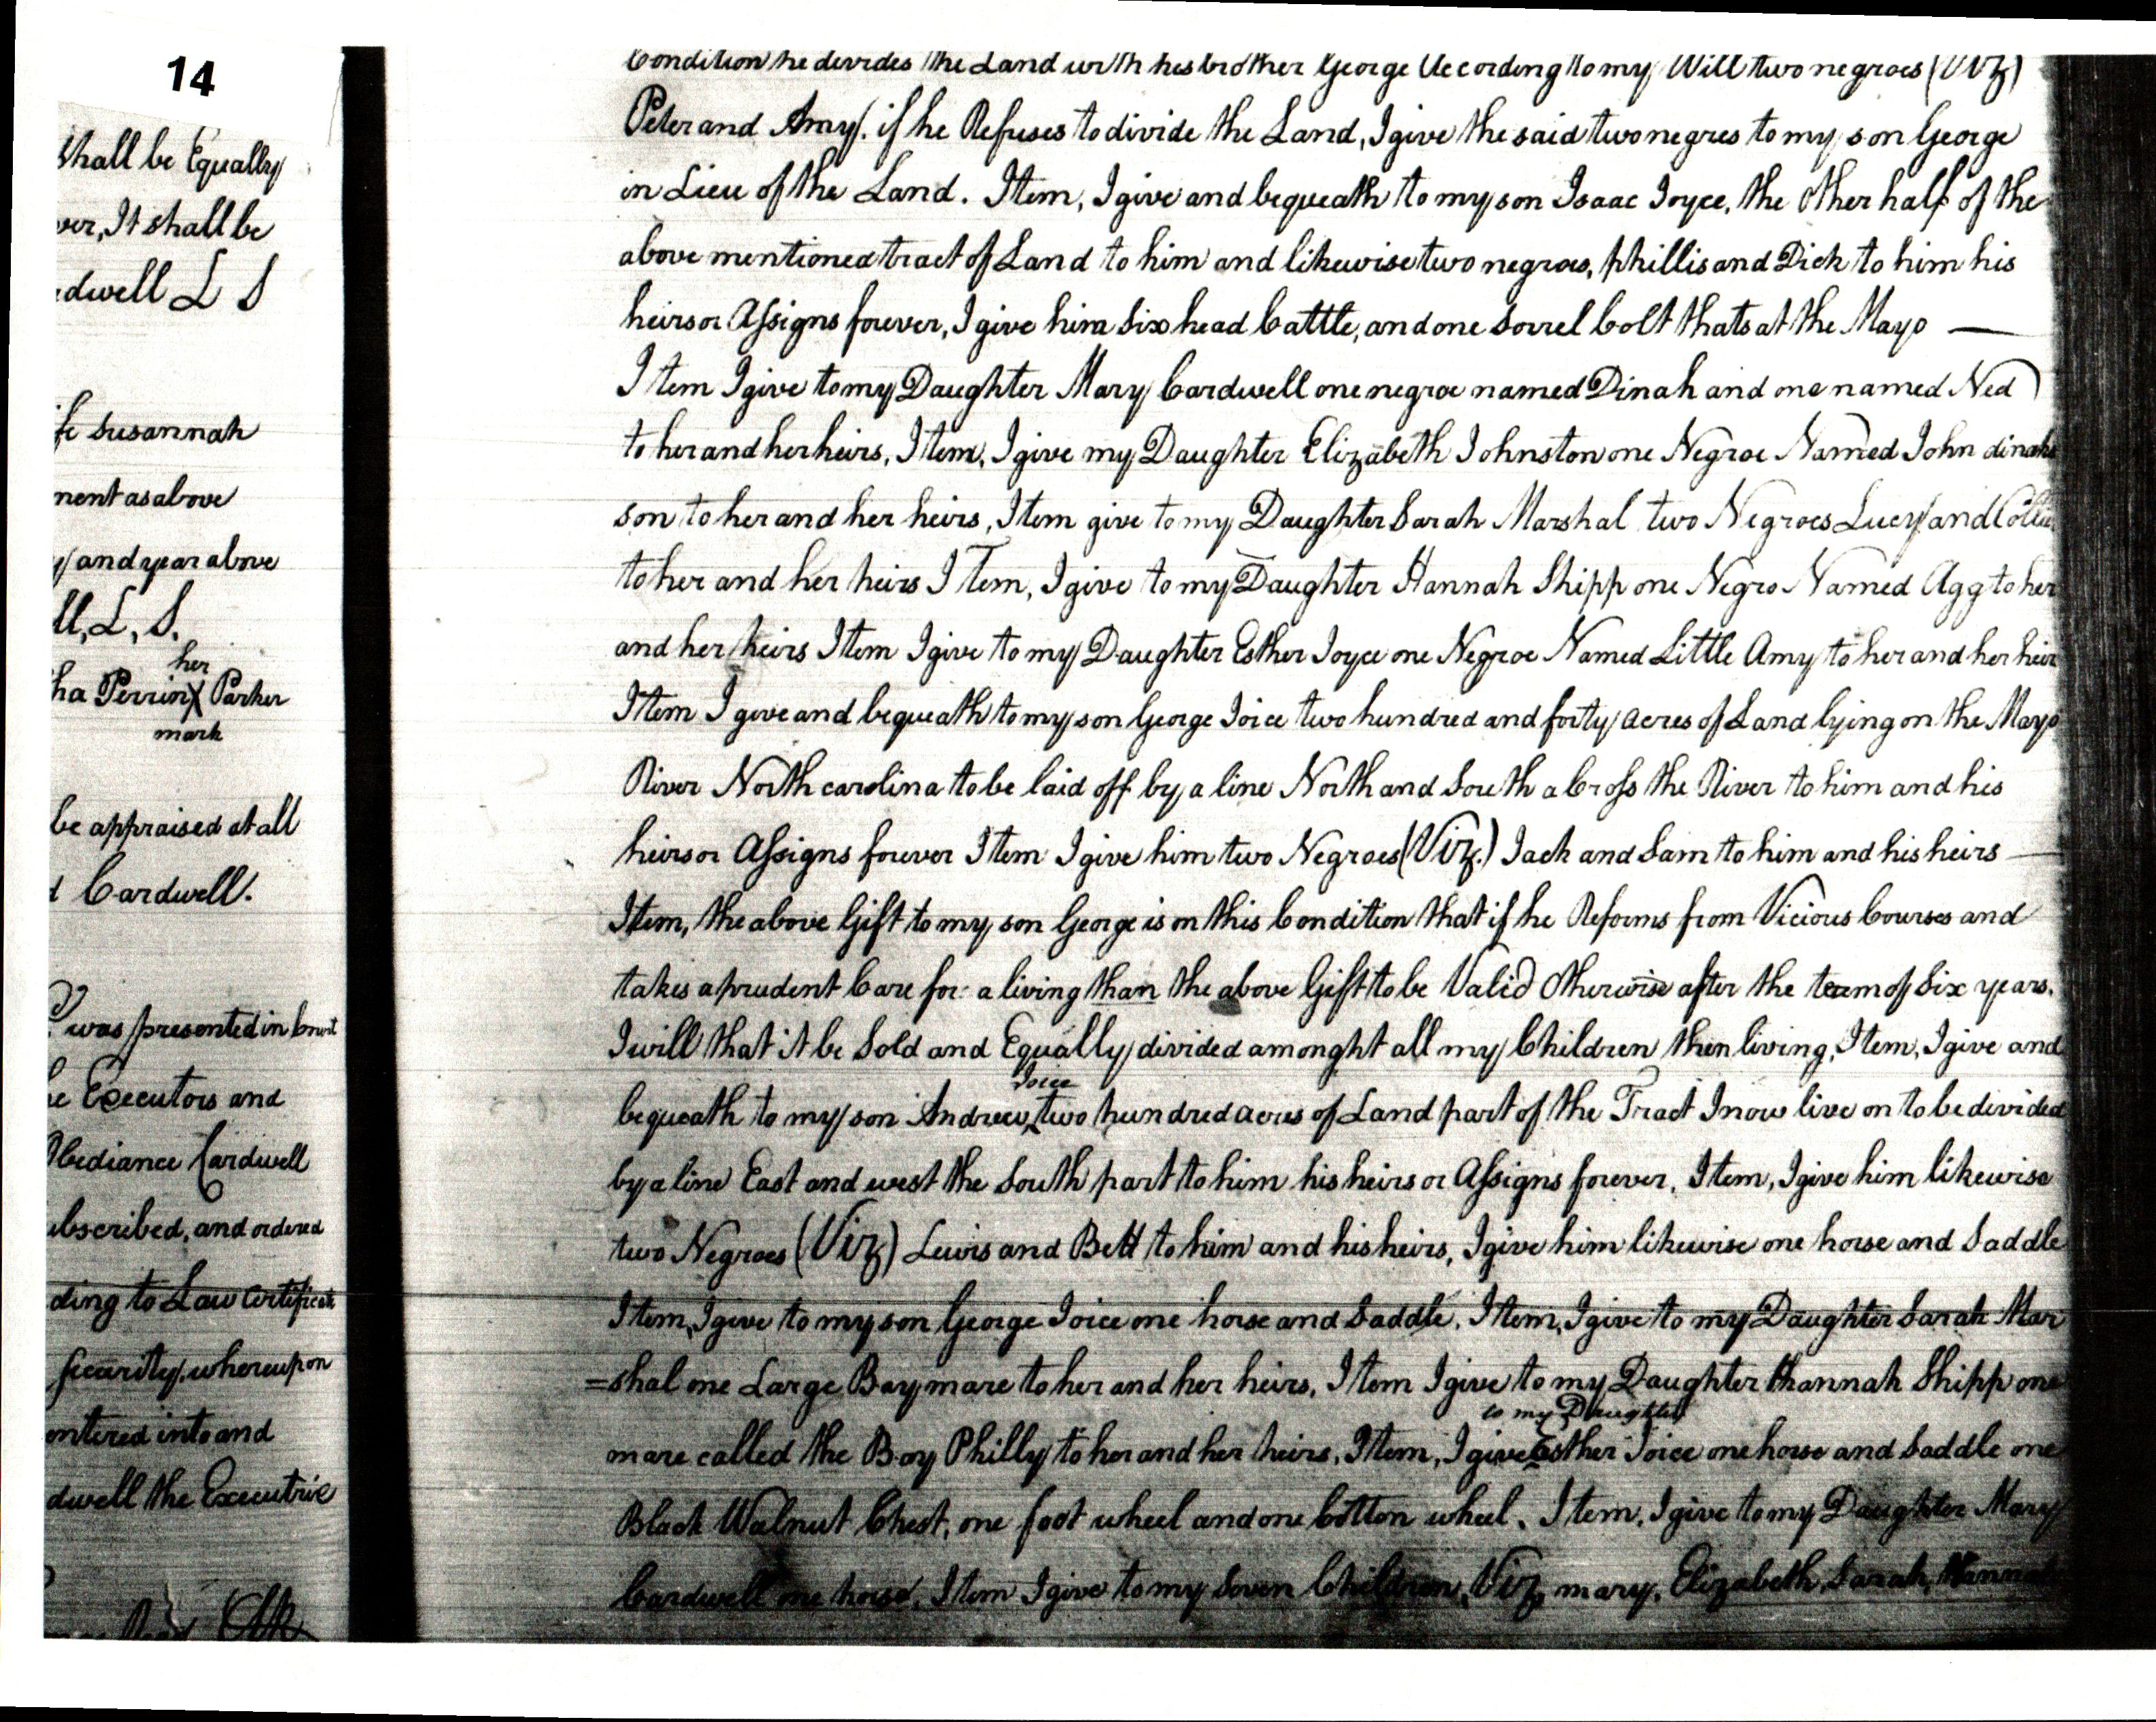 14
shall be Equally
ver, It shall be
dwell L S
fe Susannah
ment as above
y and year above
ll, L, S.
her
ha Perrin X Parker
mark
be appraised at all
d Cardwell.
was presented in Court
he Executors and
Obediance Cardwell
ubscribed, and ordered
ding to Law Certificate
security, whereupon
entered into and
dwell the Executrix
Condition he devides the Land with his brother George According to my Will two negroes (Viz)
Peter and Amy. if he Refuses to divide the Land, I give the said two negres to my son George
in Lieu of the Land. Item, I give and bequeath to my son Isaac Joyce, the Other half of the
above mentioned tract of Land to him and likewise two negroes, phillis and Dick to him his
heirs or Assigns forever, I give him Six head Cattle, and one Sorrel Colt thats at the Mayo —
Item I give to my Daughter Mary Cardwell one negroe named Dinah and one named Ned
to her and her heirs, Item, I give my Daughter Elizabeth Johnston one Negroe Named John dinahs
son to her and her heirs, Item give to my Daughter Sarah Marshal two Negroes Lucy and
to her and her heirs Item, I give to my Daughter Hannah Shipp one Negro Named Agg to her
and her heirs Item I give to my Daughter Esther Joyce one Negroe Named Little Amy to her and her heirs
Item I give and bequeath to my son George Joice two hundred and forty acres of Land lying on the Mayo
River North carolina to be laid off by a line North and South a Cross the River to him and his
heirs or Assigns forever Item I give him two Negroes (Viz.) Jack and Sam to him and his heirs —
Item, the above Gift to my son George is on this Condition that if he Reforms from Vicious Courses and
takes a prudent Care for a living than the above Gift to be Valid Otherwise after the team of Six years.
I will that it be Sold and Equally divided amonght all my Children then living, Item, I give and
bequeath to my son Andrew Joice two hundred acres of Land part of the Tract I now live on to be divided
by a line East and west the South part to him his heirs or Assigns forever, Item, I give him likewise
two Negroes (Viz) Lewis and Bett to him and his heirs, I give him likewise one horse and Saddle
Item, I give to my son George Joice one horse and Saddle, Item, I give to my Daughter Sarah Mar
=shal one Large Bay mare to her and her heirs, Item I give to my Daughter Hannah Shipp one
mare called the Bay Philly to her and her heirs, Item, I give to my Daughter Esther Joice one horse and Saddle one
Black Walnut Chest, one foot wheel and one Cotton wheel, Item, I give to my Daughter Mary
Cardwell one horse, Item I give to my Seven Children, Viz, mary, Elizabeth, Sarah, Hannah